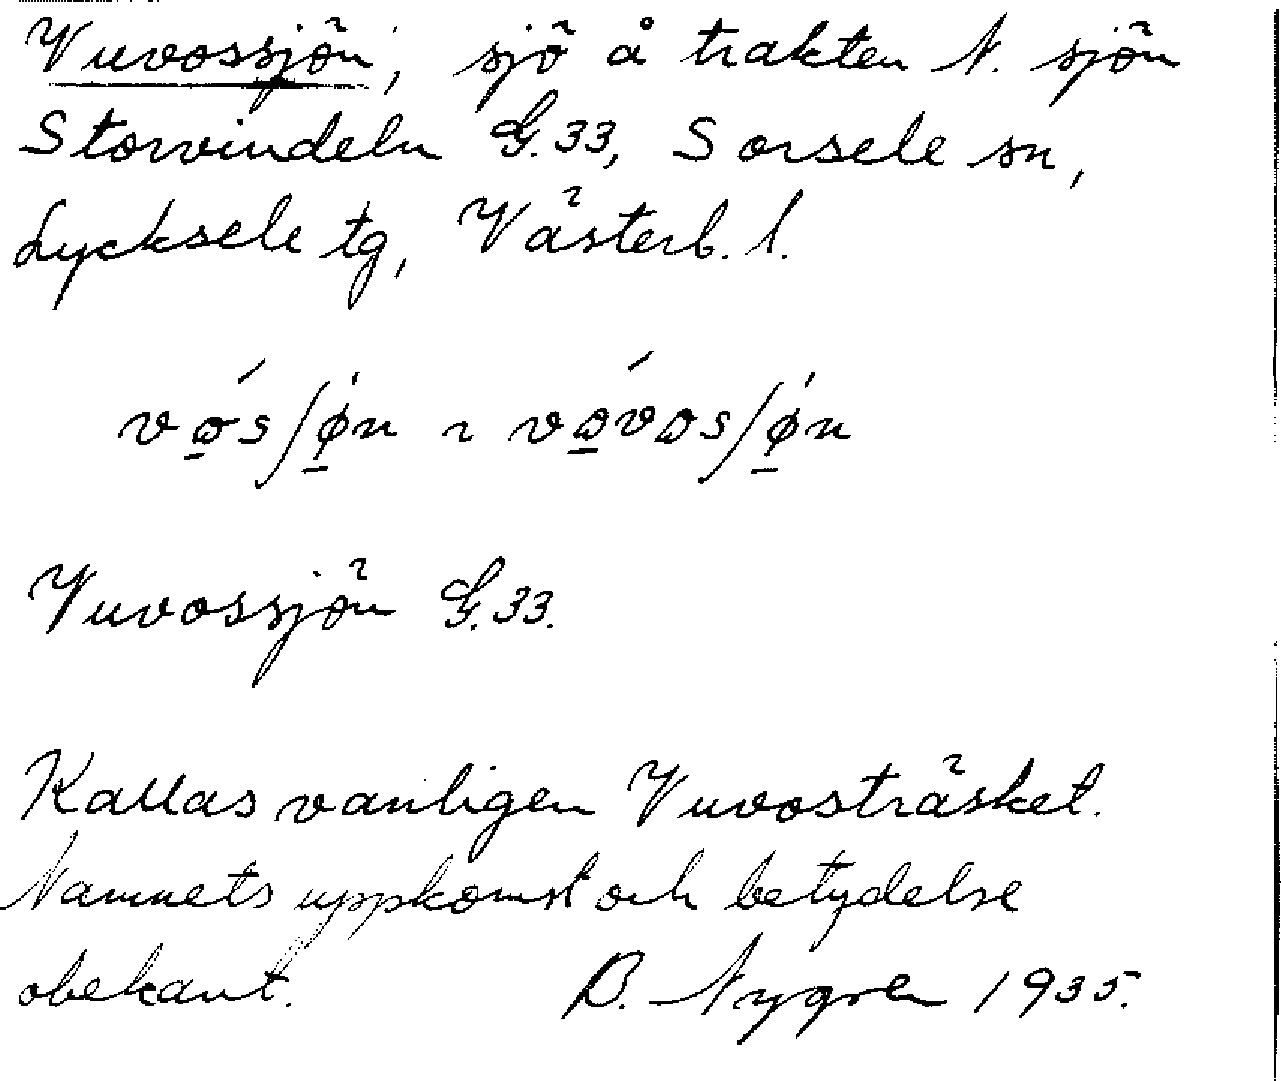 Vuvossjön, sjö å trakten N. sjön
Storvindeln G.33, Sorsele sn,
Lycksele tg, Västerb. l.
Vuvossjön G.33.
Kallas vanligen Vuvosträsket.
Namnets uppkomst och betydelse
obekant. B. Nygren 1935.